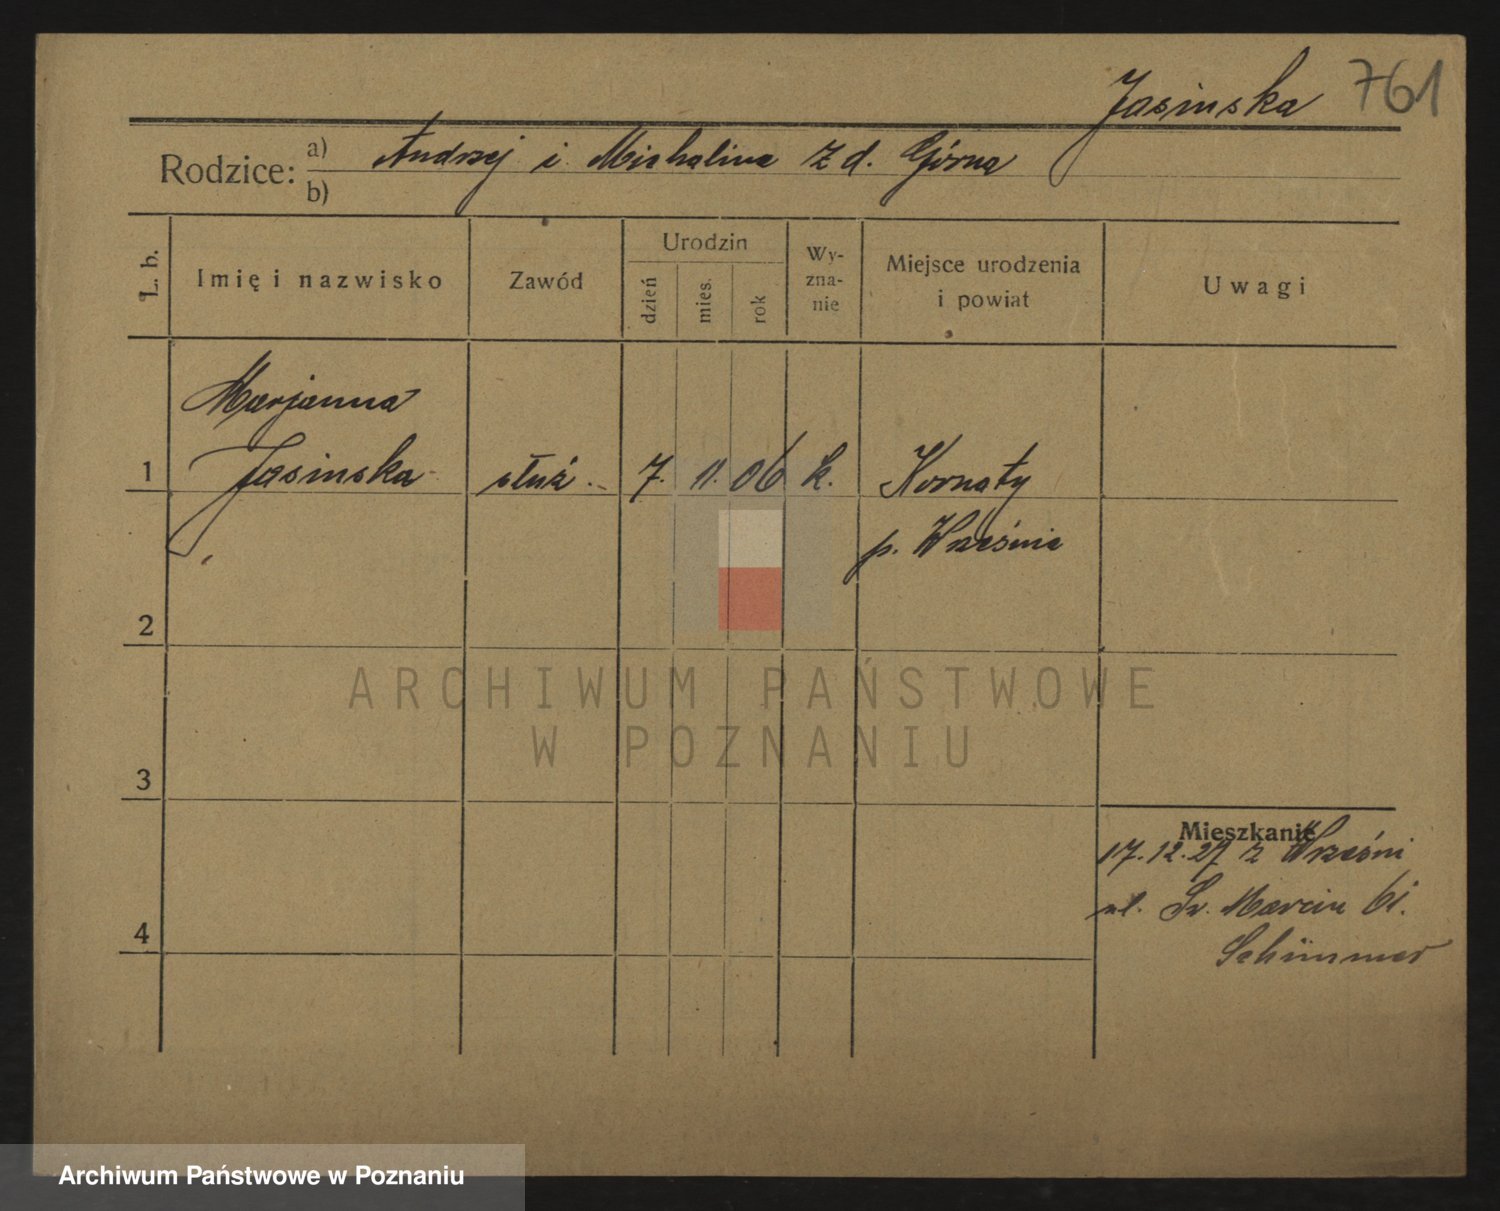 Jasinska 761
Rodzice: a) Andrzej i Michalina z d. Górna
b)
L. b.
Imię i nazwisko
Zawód
Urodzin
dzień
mies.
rok
Wy-
zna-
nie
Miejsce urodzenia
i powiat
Uwagi
Marjanna
1 Jasinska służ. 7. 11. 06 k. Kornaty
p. Września
2
ARCHIWUM PAŃSTWOWE
W POZNANIU
3
Mieszkanie
17.12.27 z Wrześni
ul. Św. Marcin 61.
Schimmer
4
Archiwum Państwowe w Poznaniu